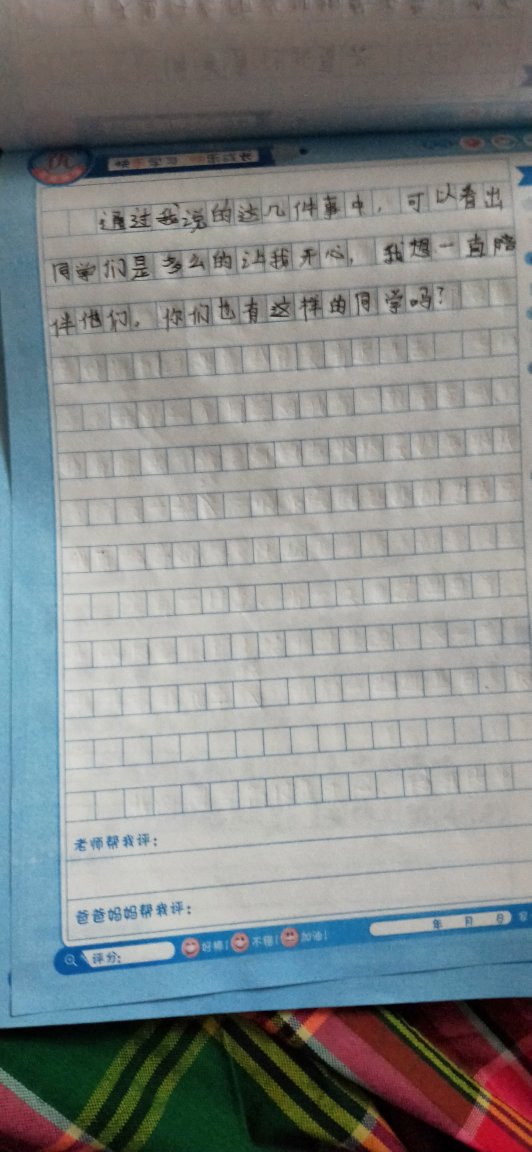 优
快乐学习 快乐成长
通过我说的这几件事中，可以看出
同学们是多么的让我开心，我想一直陪
伴他们。你们也有这样的同学吗？
老师帮我评：
爸爸妈妈帮我评：
评分： 好棒！ 不错！ 加油！ 年 月 日